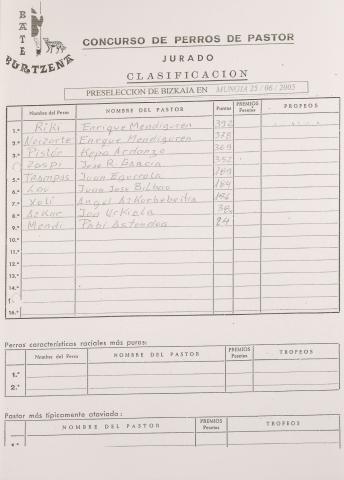 BATE
BURTZENA
CONCURSO DE PERROS DE PASTOR
JURADO
CLASIFICACION
PRESELECCION DE BIZKAIA EN MUNGIA 25 / 06 / 2005
Nombre del Perro NOMBRE DEL PASTOR Puntos PREMIOS Pesetas TROFEOS
1.º Riki Enrique Mendiguren 392
2.º Enrique Mendiguren 378
3.º Pistón Kepa Ardanza 369
Jose R. Garcia 352
5.º Trampas Juan Egurrola 189
6.º Lou Juan Jose Bilbao 184
7.º Xoli Angel Azkorbebeitia
8.º Azkar Jon Urkiola 38
9.º Mendi Pabi Astondoa 24
10.º
11.º
12.º
13.º
14.º
1
16.º
Perros características raciales más puras:
Nombre del Perro NOMBRE DEL PASTOR PREMIOS Pesetas TROFEOS
1.º
2.º
Pastor más típicamente ataviado:
NOMBRE DEL PASTOR PREMIOS Pesetas TROFEOS
1.º